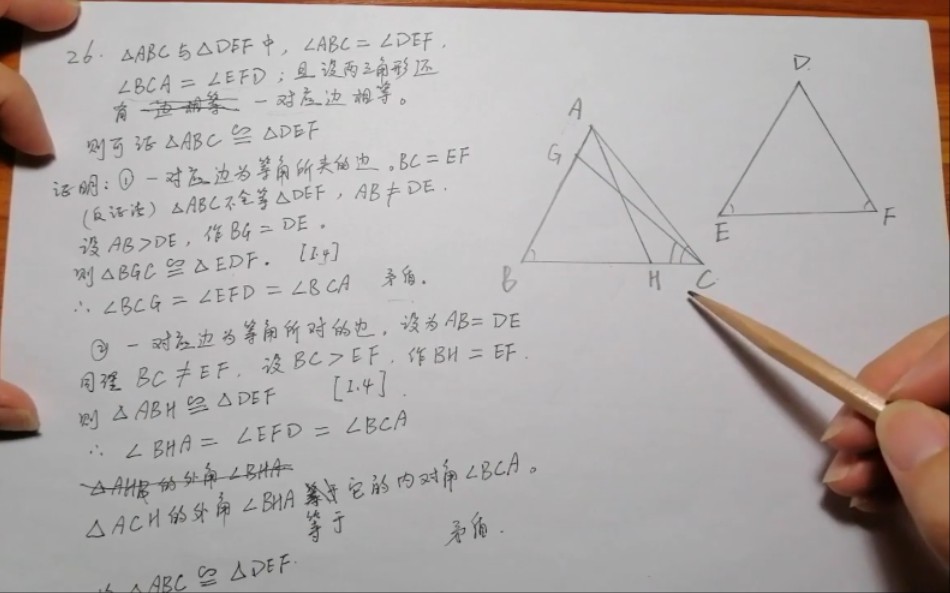 26. △ABC与△DEF中，∠ABC = ∠DEF，
∠BCA = ∠EFD；且设两三角形还
有 边相等 一对应边相等。
则可证 △ABC ≌ △DEF
证明：① 一对应边为等角所夹的边。BC = EF
(反证法) △ABC不全等△DEF，AB ≠ DE.
设 AB > DE，作 BG = DE.
则 △BGC ≌ △EDF. [I.4]
∴ ∠BCG = ∠EFD = ∠BCA 矛盾.
② 一对应边为等角所对的边，设为 AB = DE
同理 BC ≠ EF，设 BC > EF，作 BH = EF.
则 △ABH ≌ △DEF [I.4].
∴ ∠BHA = ∠EFD = ∠BCA
△AHB的外角∠BHA
△ACH的外角∠BHA 等于 它的内对角∠BCA。
等于
矛盾.
△ABC ≌ △DEF.
A
G
B
H
C
D
E
F